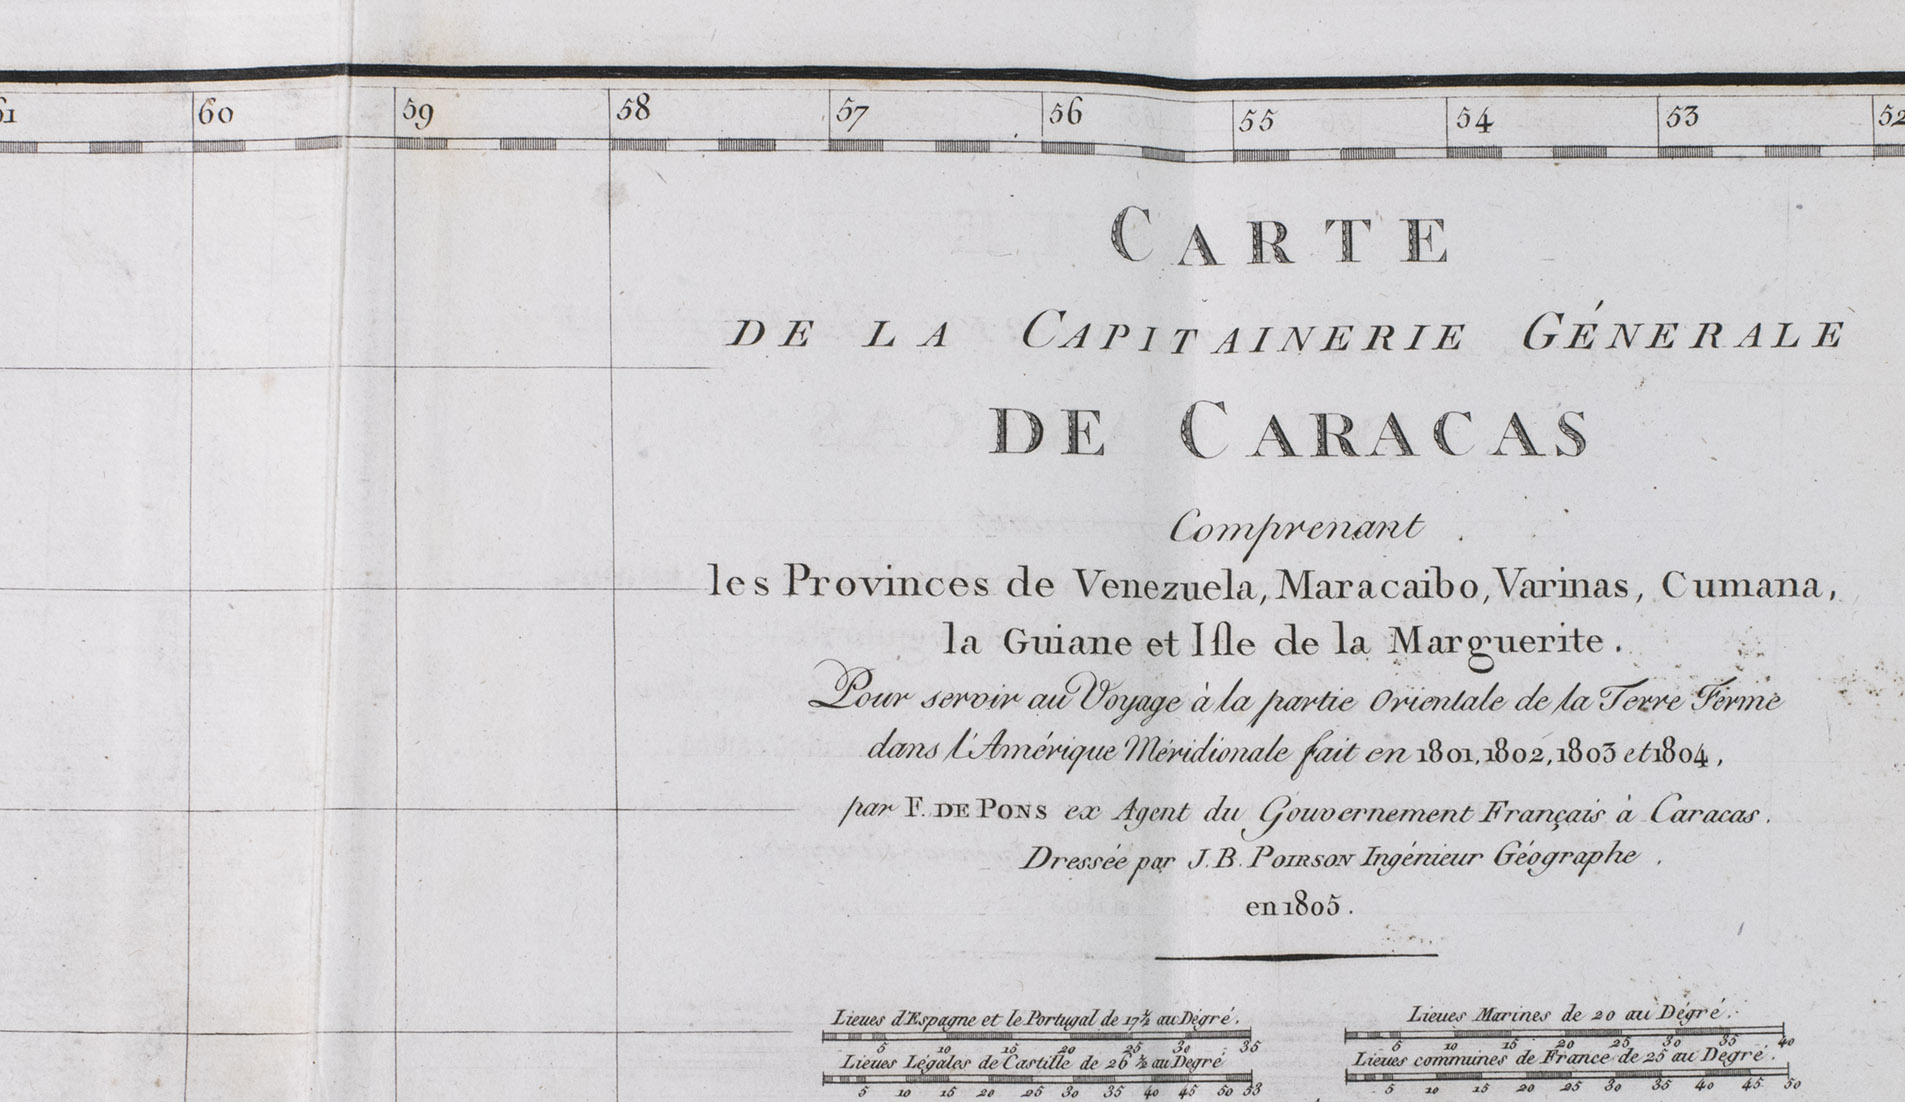 61 60 59 58 57 56 55 54 53 52
CARTE
DE LA CAPITAINERIE GÉNERALE
DE CARACAS
Comprenant
les Provinces de Venezuela, Maracaibo, Varinas, Cumana,
la Guiane et Isle de la Marguerite.
Pour servir au Voyage à la partie Orientale de la Terre Ferme
dans l'Amérique Méridionale fait en 1801, 1802, 1803 et 1804,
par F. DE PONS ex Agent du Gouvernement Français à Caracas.
Dressée par J. B. POIRSON Ingénieur Géographe.
en 1805.
Lieues d'Espagne et le Portugal de 17½ au Dégré.
5 10 15 20 25 30 35
Lieues Légales de Castille de 26½ au Dégré
5 10 15 20 25 30 35 40 45 50 53
Lieues Marines de 20 au Dégré.
5 10 15 20 25 30 35 40
Lieues communes de France de 25 au Degré.
5 10 15 20 25 30 35 40 45 50